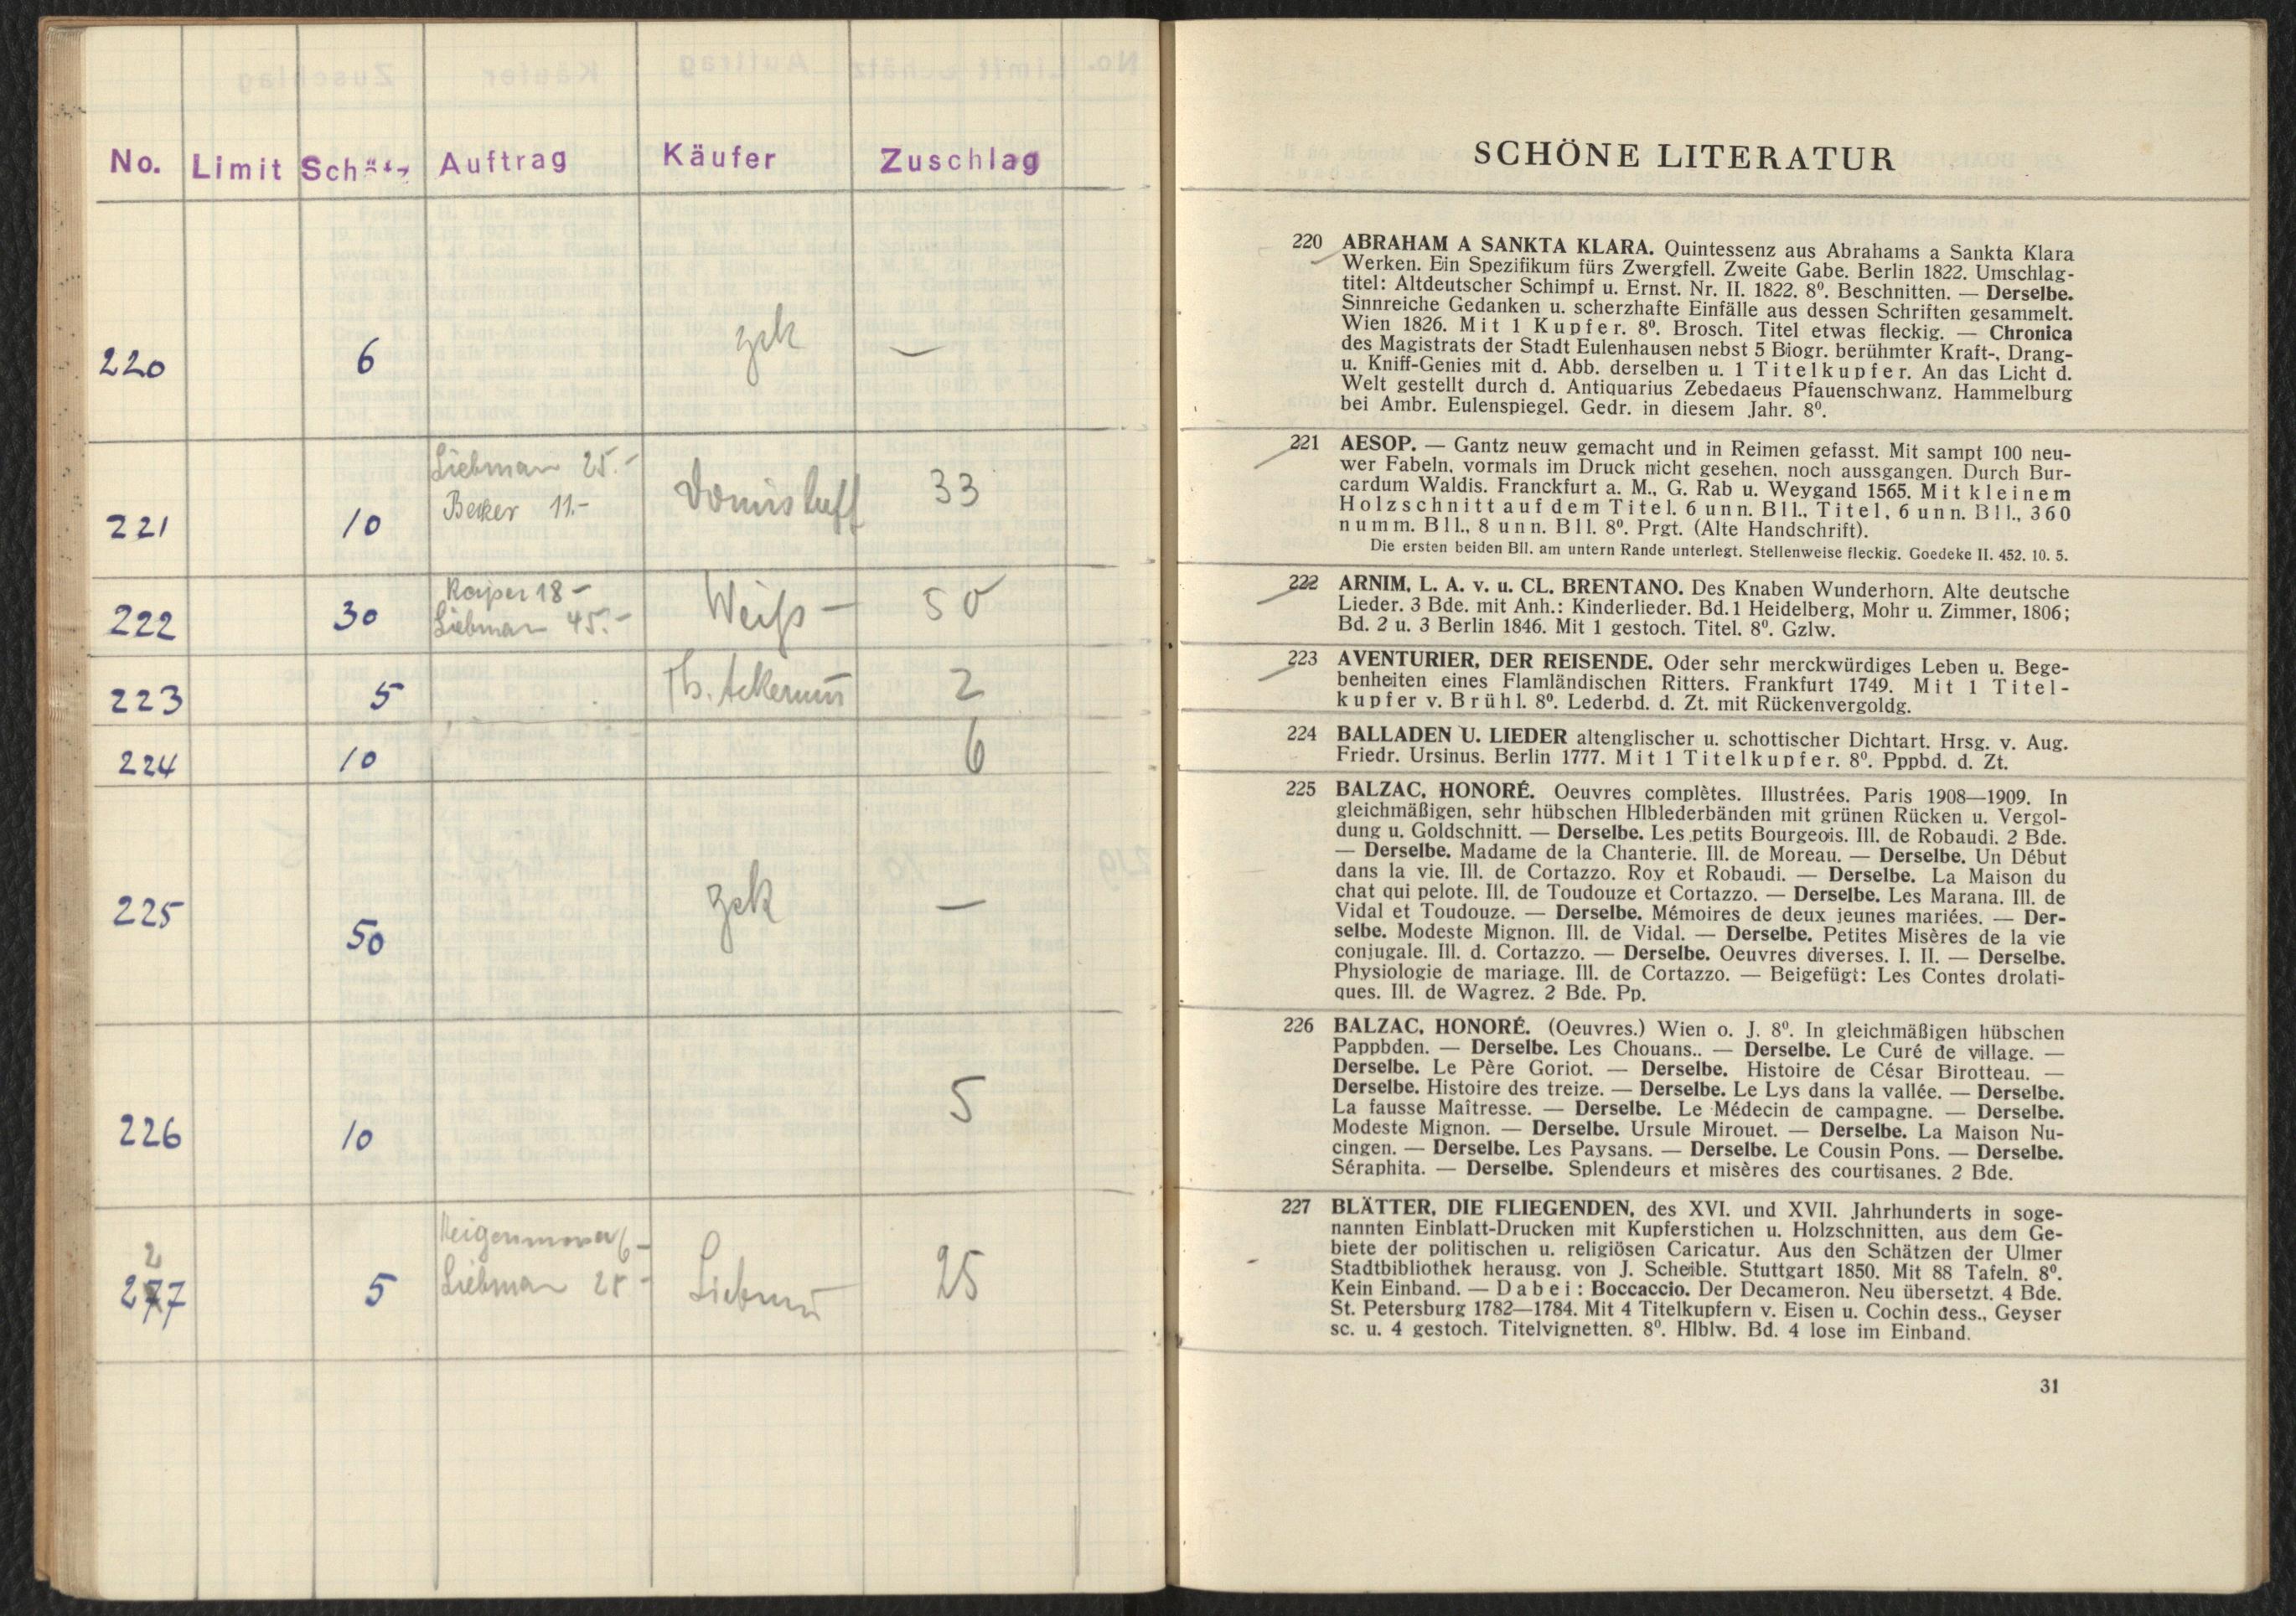 No. Limit Schätz Auftrag Käufer Zuschlag
220 6 zck —
Liebman 25.-
Becker 11.-
221 10 33
18 -
Liebman 45.-
222 30 Weiß - 50
223 5 Th. Ackermann 2
224 10 6
225 50 zck —
226 10 5
6 -
Liebman 25 -
2
277 5 Liebmann 25
SCHÖNE LITERATUR
220 ABRAHAM A SANKTA KLARA. Quintessenz aus Abrahams a Sankta Klara
Werken. Ein Spezifikum fürs Zwergfell. Zweite Gabe. Berlin 1822. Umschlag-
titel: Altdeutscher Schimpf u. Ernst. Nr. II. 1822. 8⁰. Beschnitten. — Derselbe.
Sinnreiche Gedanken u. scherzhafte Einfälle aus dessen Schriften gesammelt.
Wien 1826. Mit 1 Kupfer. 8⁰. Brosch. Titel etwas fleckig. — Chronica
des Magistrats der Stadt Eulenhausen nebst 5 Biogr. berühmter Kraft-, Drang-
u. Kniff-Genies mit d. Abb. derselben u. 1 Titelkupfer. An das Licht d.
Welt gestellt durch d. Antiquarius Zebedaeus Pfauenschwanz. Hammelburg
bei Ambr. Eulenspiegel. Gedr. in diesem Jahr. 8⁰.
221 AESOP. — Gantz neuw gemacht und in Reimen gefasst. Mit sampt 100 neu-
wer Fabeln, vormals im Druck nicht gesehen, noch aussgangen. Durch Bur-
cardum Waldis. Franckfurt a. M., G. Rab u. Weygand 1565. Mit kleinem
Holzschnitt auf dem Titel. 6 unn. Bll., Titel, 6 unn. Bll., 360
numm. Bll., 8 unn. Bll. 8⁰. Prgt. (Alte Handschrift).
Die ersten beiden Bll. am untern Rande unterlegt. Stellenweise fleckig. Goedeke II. 452. 10. 5.
222 ARNIM, L. A. v. u. CL. BRENTANO. Des Knaben Wunderhorn. Alte deutsche
Lieder. 3 Bde. mit Anh.: Kinderlieder. Bd.1 Heidelberg, Mohr u. Zimmer, 1806;
Bd. 2 u. 3 Berlin 1846. Mit 1 gestoch. Titel. 8⁰. Gzlw.
223 AVENTURIER, DER REISENDE. Oder sehr merckwürdiges Leben u. Bege-
benheiten eines Flamländischen Ritters. Frankfurt 1749. Mit 1 Titel-
kupfer v. Brühl. 8⁰. Lederbd. d. Zt. mit Rückenvergoldg.
224 BALLADEN U. LIEDER altenglischer u. schottischer Dichtart. Hrsg. v. Aug.
Friedr. Ursinus. Berlin 1777. Mit 1 Titelkupfer. 8⁰. Pppbd. d. Zt.
225 BALZAC, HONORÉ. Oeuvres complètes. Illustrées. Paris 1908—1909. In
gleichmäßigen, sehr hübschen Hlblederbänden mit grünen Rücken u. Vergol-
dung u. Goldschnitt. — Derselbe. Les petits Bourgeois. Ill. de Robaudi. 2 Bde.
— Derselbe. Madame de la Chanterie. Ill. de Moreau. — Derselbe. Un Début
dans la vie. Ill. de Cortazzo. Roy et Robaudi. — Derselbe. La Maison du
chat qui pelote. Ill. de Toudouze et Cortazzo. — Derselbe. Les Marana. Ill. de
Vidal et Toudouze. — Derselbe. Mémoires de deux jeunes mariées. — Der-
selbe. Modeste Mignon. Ill. de Vidal. — Derselbe. Petites Misères de la vie
conjugale. Ill. d. Cortazzo. — Derselbe. Oeuvres diverses. I. II. — Derselbe.
Physiologie de mariage. Ill. de Cortazzo. — Beigefügt: Les Contes drolati-
ques. Ill. de Wagrez. 2 Bde. Pp.
226 BALZAC, HONORÉ. (Oeuvres.) Wien o. J. 8⁰. In gleichmäßigen hübschen
Pappbden. — Derselbe. Les Chouans.. — Derselbe. Le Curé de village. —
Derselbe. Le Père Goriot. — Derselbe. Histoire de César Birotteau. —
Derselbe. Histoire des treize. — Derselbe. Le Lys dans la vallée. — Derselbe.
La fausse Maîtresse. — Derselbe. Le Médecin de campagne. — Derselbe.
Modeste Mignon. — Derselbe. Ursule Mirouet. — Derselbe. La Maison Nu-
cingen. — Derselbe. Les Paysans. — Derselbe. Le Cousin Pons. — Derselbe.
Séraphita. — Derselbe. Splendeurs et misères des courtisanes. 2 Bde.
227 BLÄTTER, DIE FLIEGENDEN, des XVI. und XVII. Jahrhunderts in soge-
nannten Einblatt-Drucken mit Kupferstichen u. Holzschnitten, aus dem Ge-
biete der politischen u. religiösen Caricatur. Aus den Schätzen der Ulmer
Stadtbibliothek herausg. von J. Scheible. Stuttgart 1850. Mit 88 Tafeln. 8⁰.
Kein Einband. — Dabei: Boccaccio. Der Decameron. Neu übersetzt. 4 Bde.
St. Petersburg 1782—1784. Mit 4 Titelkupfern v. Eisen u. Cochin dess., Geyser
sc. u. 4 gestoch. Titelvignetten. 8⁰. Hlblw. Bd. 4 lose im Einband.
31